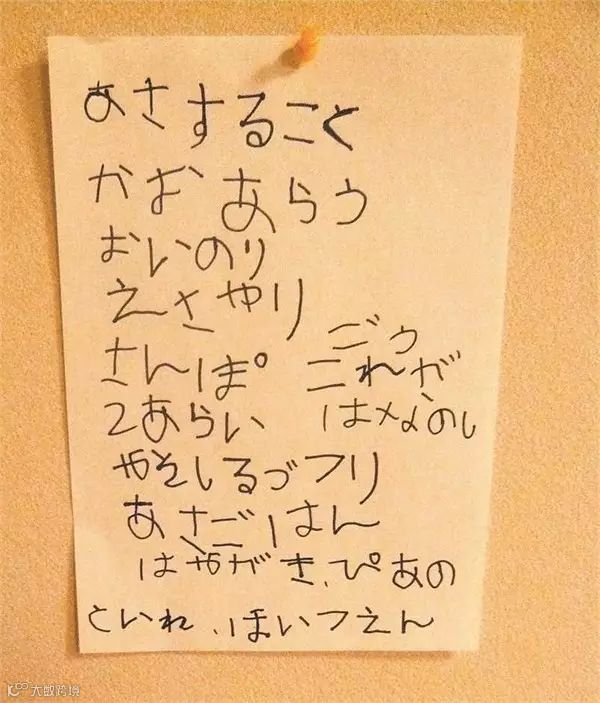 あさすること
かおあらう
おいのり
えさやり
さんぽ
これが
てあらい
はなのし
みそしるづくり
あさごはん
はみがき、ぴあの
といれ、ほいくえん
大数跨境